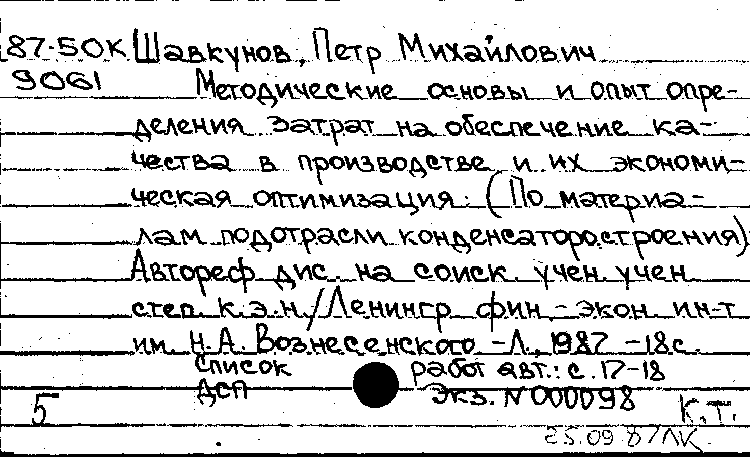 87-50К Шавкунов, Петр Михайлович
9061 Методические основы и опыт опре-
деления затрат на обеспечение ка-
чества в производстве и их экономи-
ческая оптимизация: (По материа-
лам подотрасли конденсаторостроения):
Автореф. дис. на соиск. учен. учен.
степ. к.э.н./Ленингр. фин.-экон. ин-т
им. Н.А. Вознесенского. -Л., 1987. -18с.
Список работ авт.: с. 17-18
ДСП Экз. N000098
5 К.Т.
25.09.87ЛК